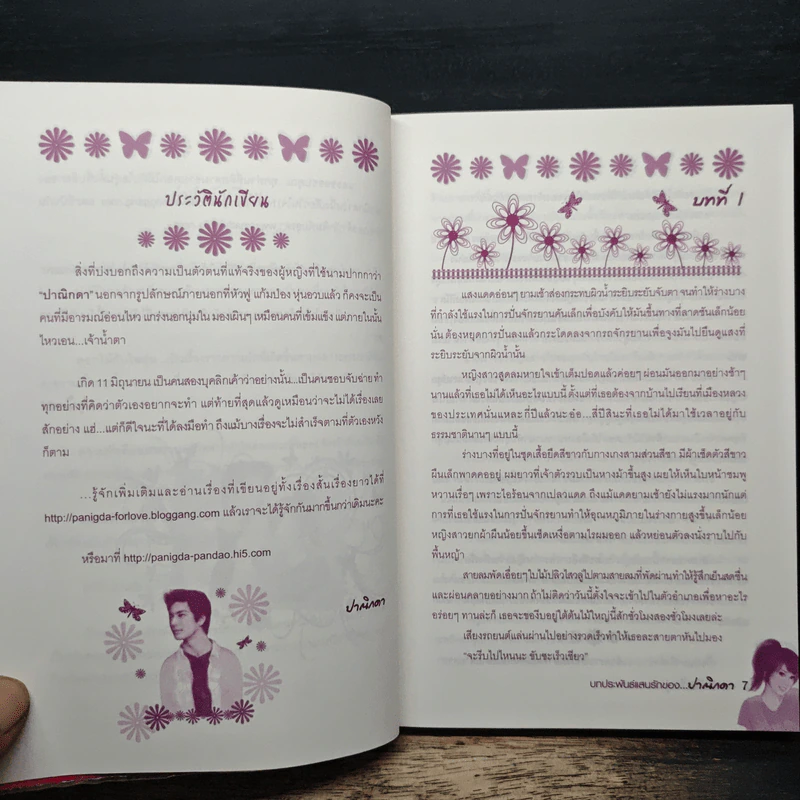 ประวัตินักเขียน
สิ่งที่บ่งบอกถึงความเป็นตัวตนที่แท้จริงของผู้หญิงที่ใช้นามปากกาว่า
"ปาณิกดา" นอกจากรูปลักษณ์ภายนอกที่หัวฟู แก้มป่อง หุ่นอวบแล้ว ก็คงจะเป็น
คนที่มีอารมณ์อ่อนไหว แกร่งนอกนุ่มใน มองเผินๆ เหมือนคนที่เข้มแข็ง แต่ภายในนั้น
ไหวเอน...เจ้าน้ำตา
เกิด 11 มิถุนายน เป็นคนสองบุคลิกเค้าว่าอย่างนั้น...เป็นคนชอบจับฉ่ายทำ
ทุกอย่างที่คิดว่าตัวเองอยากจะทำ แต่ท้ายที่สุดแล้วดูเหมือนว่าจะไม่ได้เรื่องเลย
สักอย่าง แฮ่...แต่ก็ดีใจนะที่ได้ลงมือทำ ถึงแม้บางเรื่องจะไม่สำเร็จตามที่ตัวเองหวัง
ก็ตาม
...รู้จักเพิ่มเติมและอ่านเรื่องที่เขียนอยู่ทั้งเรื่องสั้นเรื่องยาวได้ที่
http://panigda-forlove.bloggang.com แล้วเราจะได้รู้จักกันมากขึ้นกว่าเดิมนะคะ
หรือมาที่ http://panigda-pandao.hi5.com
ปาณิกดา
บทที่ 1
แสงแดดอ่อนๆ ยามเช้าส่องกระทบผิวน้ำระยิบระยับจับตา จนทำให้ร่างบาง
ที่กำลังใช้แรงในการปั่นจักรยานคันเล็กเพื่อบังคับให้มันขึ้นทางที่ลาดชันเล็กน้อย
นั่น ต้องหยุดการปั่นลงแล้วกระโดดลงจากรถจักรยานเพื่อจูงมันไปยืนดูแสงที่
ระยิบระยับจากผิวน้ำนั้น
หญิงสาวสูดลมหายใจเข้าเต็มปอดแล้วค่อยๆ ผ่อนมันออกมาอย่างช้าๆ
นานแล้วที่เธอไม่ได้เห็นอะไรแบบนี้ ตั้งแต่ที่เธอต้องจากบ้านไปเรียนที่เมืองหลวง
ของประเทศนั่นแหละ กี่ปีแล้วนะ อ๋อ...สี่ปีสินะที่เธอไม่ได้มาใช้เวลาอยู่กับ
ธรรมชาตินานๆ แบบนี้
ร่างบางที่อยู่ในชุดเสื้อยืดสีขาวกับกางเกงสามส่วนสีชา มีผ้าเช็ดตัวสีขาว
ผืนเล็กพาดคออยู่ ผมยาวที่เจ้าตัวรวบเป็นหางม้าขึ้นสูง เผยให้เห็นใบหน้าชมพู
หวานเรื่อๆ เพราะไอร้อนจากเปลวแดด ถึงแม้แดดยามเช้ายังไม่แรงมากนักแต่
การที่เธอใช้แรงในการปั่นจักรยานทำให้อุณหภูมิภายในร่างกายสูงขึ้นเล็กน้อย
หญิงสาวยกผ้าผืนน้อยขึ้นเช็ดเหงื่อตามไรผมออก แล้วหย่อนตัวลงนั่งราบไปกับ
พื้นหญ้า
สายลมพัดเอื่อยๆ ใบไม้ปลิวไสวลู่ไปตามสายลมที่พัดผ่านทำให้รู้สึกเย็นสดชื่น
และผ่อนคลายอย่างมาก ถ้าไม่ติดว่าวันนี้ตั้งใจจะเข้าไปในตัวอำเภอเพื่อหาอะไร
อร่อยๆ ทานล่ะก็ เธอจะของีบอยู่ใต้ต้นไม้ใหญ่นี้สักชั่วโมงสองชั่วโมงเลยล่ะ
เสียงรถยนต์แล่นผ่านไปอย่างรวดเร็วทำให้เธอละสายตาหันไปมอง
"จะรีบไปไหนนะ ขับซะเร็วเชียว"
บทประพันธ์แสนรักของ...ปาณิกดา 7